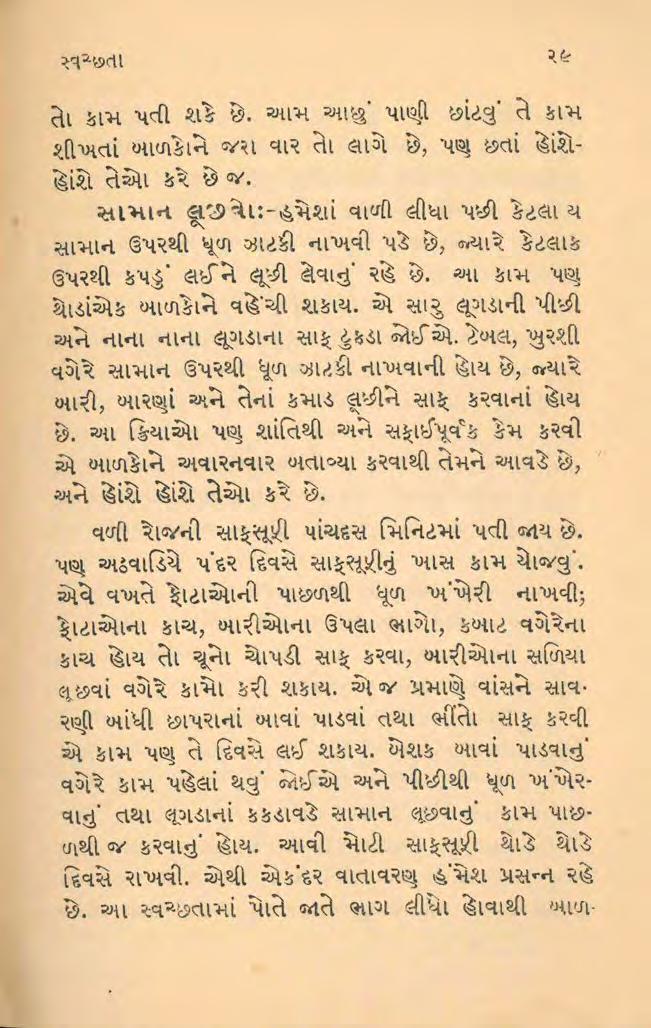 સ્વચ્છતા ૨૯
તો કામ પતી શકે છે. આમ આછું પાણી છાંટવું તે કામ
શીખતાં બાળકોને જરા વાર તો લાગે છે, પણ છતાં હોંશે-
હોંશે તેઓ કરે છે જ.
સામાન લૂછવોઃ-હમેશાં વાળી લીધા પછી કેટલા ય
સામાન ઉપરથી ધૂળ ઝાટકી નાખવી પડે છે, જ્યારે કેટલાક
ઉપરથી કપડું લઈને લૂછી લેવાનું રહે છે. આ કામ પણ
થોડાંએક બાળકોને વહેંચી શકાય. એ સારુ લૂગડાની પીછી
અને નાના નાના લૂગડાના સાફ ટુકડા જોઈએ. ટેબલ, ખુરશી
વગેરે સામાન ઉપરથી ધૂળ ઝાટકી નાખવાની હોય છે, જ્યારે
બારી, બારણાં અને તેનાં કમાડ લૂછીને સાફ કરવાનાં હોય
છે. આ ક્રિયાઓ પણ શાંતિથી અને સફાઈપૂર્વક કેમ કરવી
એ બાળકોને અવારનવાર બતાવ્યા કરવાથી તેમને આવડે છે,
અને હોંશે હોંશે તેઓ કરે છે.
વળી રોજની સાફસૂફી પાંચદસ મિનિટમાં પતી જાય છે.
પણ અઠવાડિયે પંદર દિવસે સાફસૂફીનું ખાસ કામ યોજવું.
એવે વખતે ફોટાઓની પાછળથી ધૂળ ખંખેરી નાખવી;
ફોટાઓના કાચ, બારીઓના ઉપલા ભાગો, કબાટ વગેરેના
કાચ હોય તો ચૂનો ચોપડી સાફ કરવા, બારીઓના સળિયા
લૂછવાં વગેરે કામો કરી શકાય. એ જ પ્રમાણે વાંસને સાવ-
રણી બાંધી છાપરાનાં બાવાં પાડવાં તથા ભીંતો સાફ કરવી
એ કામ પણ તે દિવસે લઈ શકાય. બેશક બાવાં પાડવાનું
વગેરે કામ પહેલાં થવું જોઈએ અને પીછીથી ધૂળ ખંખેર-
વાનું તથા લૂગડાનાં કકડાવડે સામાન લૂછવાનું કામ પાછ-
ળથી જ કરવાનું હોય. આવી મોટી સાફસૂફી થોડે થોડે
દિવસે રાખવી. એથી એકંદર વાતાવરણ હંમેશ પ્રસન્ન રહે
છે. આ સ્વચ્છતામાં પોતે જાતે ભાગ લીધો હોવાથી બાળ-